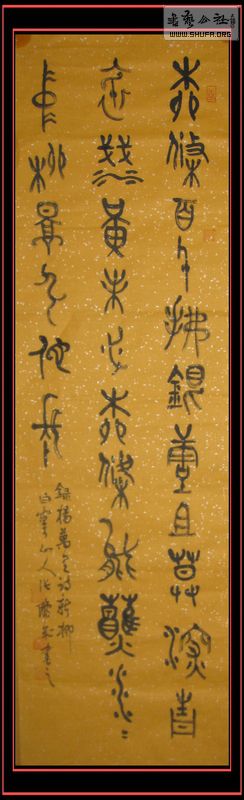 書藝公社
WWW.SHUFA.ORG
柳條百尺拂銀塘且莫深青
只淺黃未必柳條能蘸水〻
中柳影引他長
錄楊萬里詩新柳
山人 書之